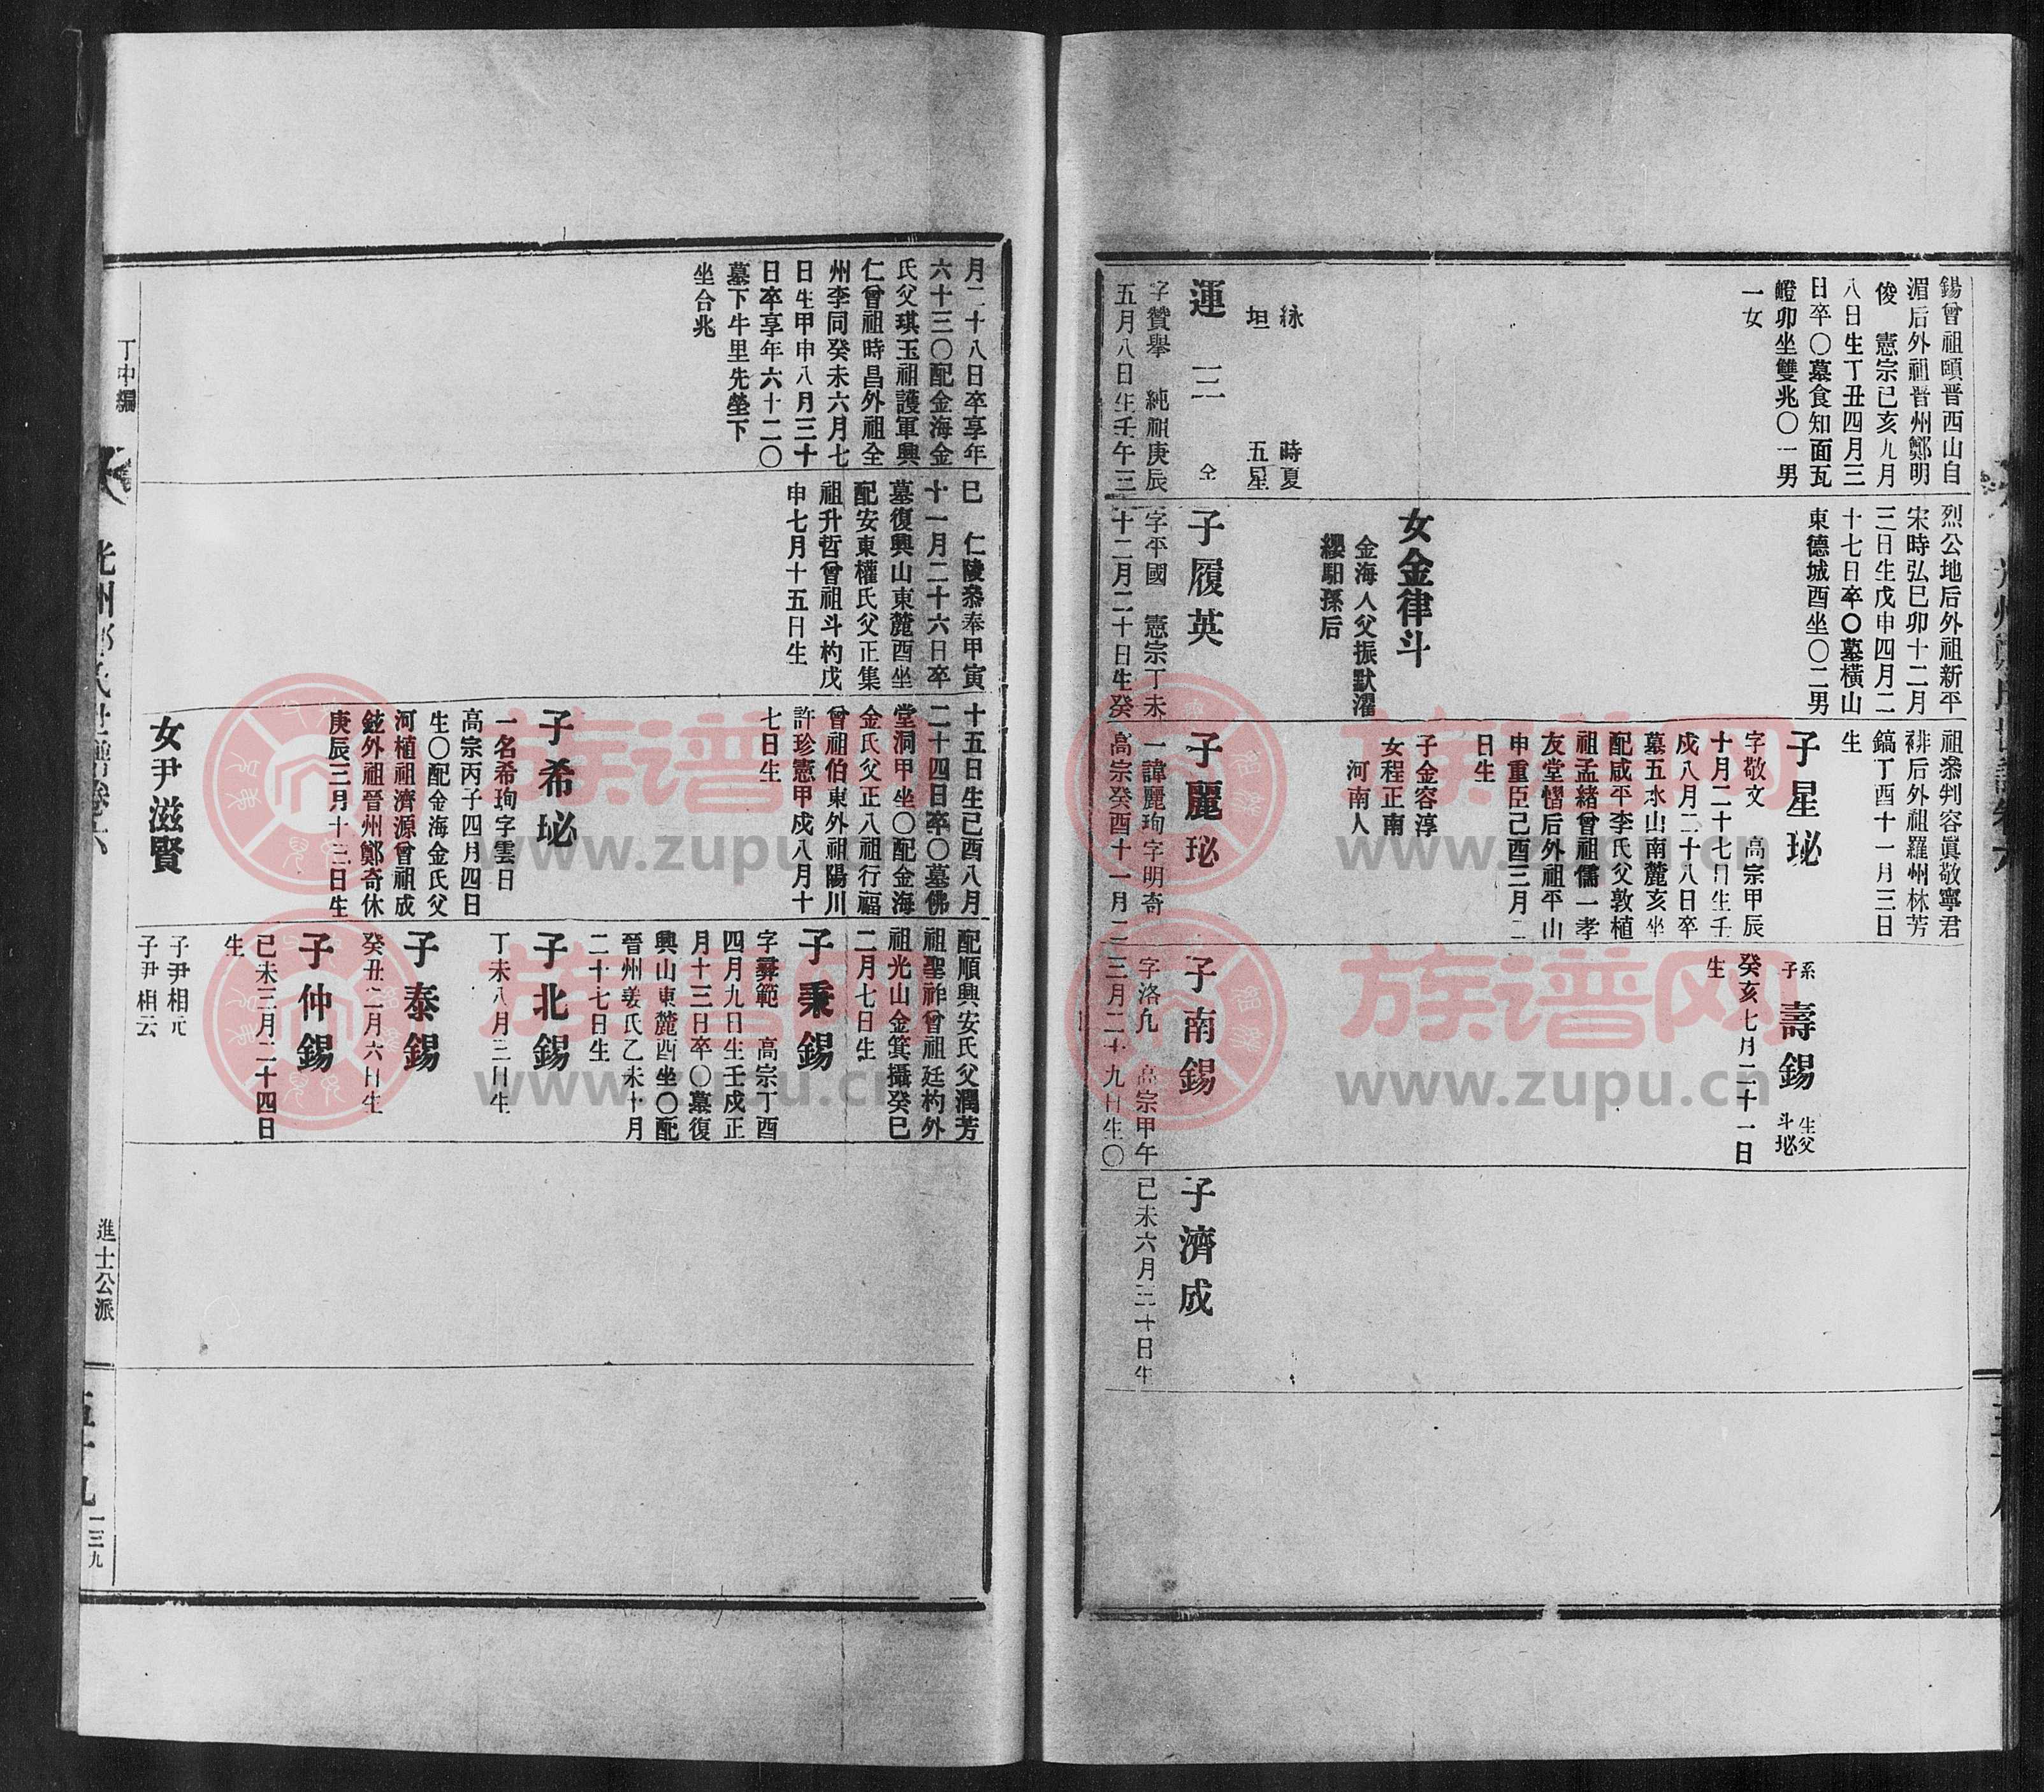 錫曾祖頤晋西山自
湄后外祖晋州鄭明
俊　憲宗己亥九月
八日生丁丑四月三
日卒〇墓食知面瓦
嶝卯坐雙兆〇一男
一女
泳　時夏
坦　五星
運三　仝
字贊擧　純祖庚辰
五月八日生壬午三
烈公地后外祖新平
宋時弘巳卯十二月
三日生戊申四月二
十七日卒〇墓橫山
東德城酉坐〇二男
女金律斗
金海人父振默濯
纓馹孫后
子履英
字平國　憲宗丁未
十二月二十日生癸
祖叅判容眞敬寧君
裶后外祖羅州林芳
鎬丁酉十一月三日
生
子星珌
字敬文　高宗甲辰
十月二十七日生壬
戍八月二十八日卒
墓五木山南麓亥坐
配咸平李氏父敦植
祖孟緒曾祖儒一孝
友堂慴后外祖平山
申重臣己酉三月二
日生
子金容淳
女程正南
河南人
子麗珌
一諱麗珣字明奇
高宗癸酉十一月二
系子壽錫　生父斗珌
癸亥七月二十一日
生
子南錫
字洛九　高宗甲午
三月二十九日生〇
子濟成
已未六月三十日生
月二十八日卒享年
六十三〇配金海金
氏父琪玉祖護軍興
仁曾祖時昌外祖全
州李同癸未六月七
日生甲申八月三十
日卒享年六十二〇
墓下牛里先塋下
坐合兆
巳　仁陵叅奉甲寅
十一月二十六日卒
墓復興山東麓酉坐
配安東權氏父正集
祖升哲曾祖斗杓戊
申七月十五日生
十五日生已酉八月
二十四日卒〇墓佛
堂洞甲坐〇配金海
金氏父正八祖行福
曾祖伯東外祖陽川
許珍憲甲戍八月十
七日生
子希珌
一名希珣字雲日
高宗丙子四月四日
生〇配金海金氏父
河植祖濟源曾祖成
鉉外祖晉州鄭奇休
庚辰三月十三日生
女尹滋賢
配順興安氏父潤芳
祖聖祚曾祖廷杓外
祖光山金箕攝癸巳
二月七日生
子秉錫
字彝範　高宗丁酉
四月九日生壬戍正
月十三日卒〇墓復
興山東麓酉坐〇配
晉州姜氏乙未十月
二十七日生
子北錫
丁未八月三日生
子泰錫
癸丑二月六日生
子仲錫
已未三月二十四日
生
子尹相元
子尹相云
丁中編
光州鄭氏世譜卷六
進士公派
五十九
一三九
族谱网
www.zupu.cn
族谱网
www.zupu.cn
族谱网
www.zupu.cn
族谱网
www.zupu.cn